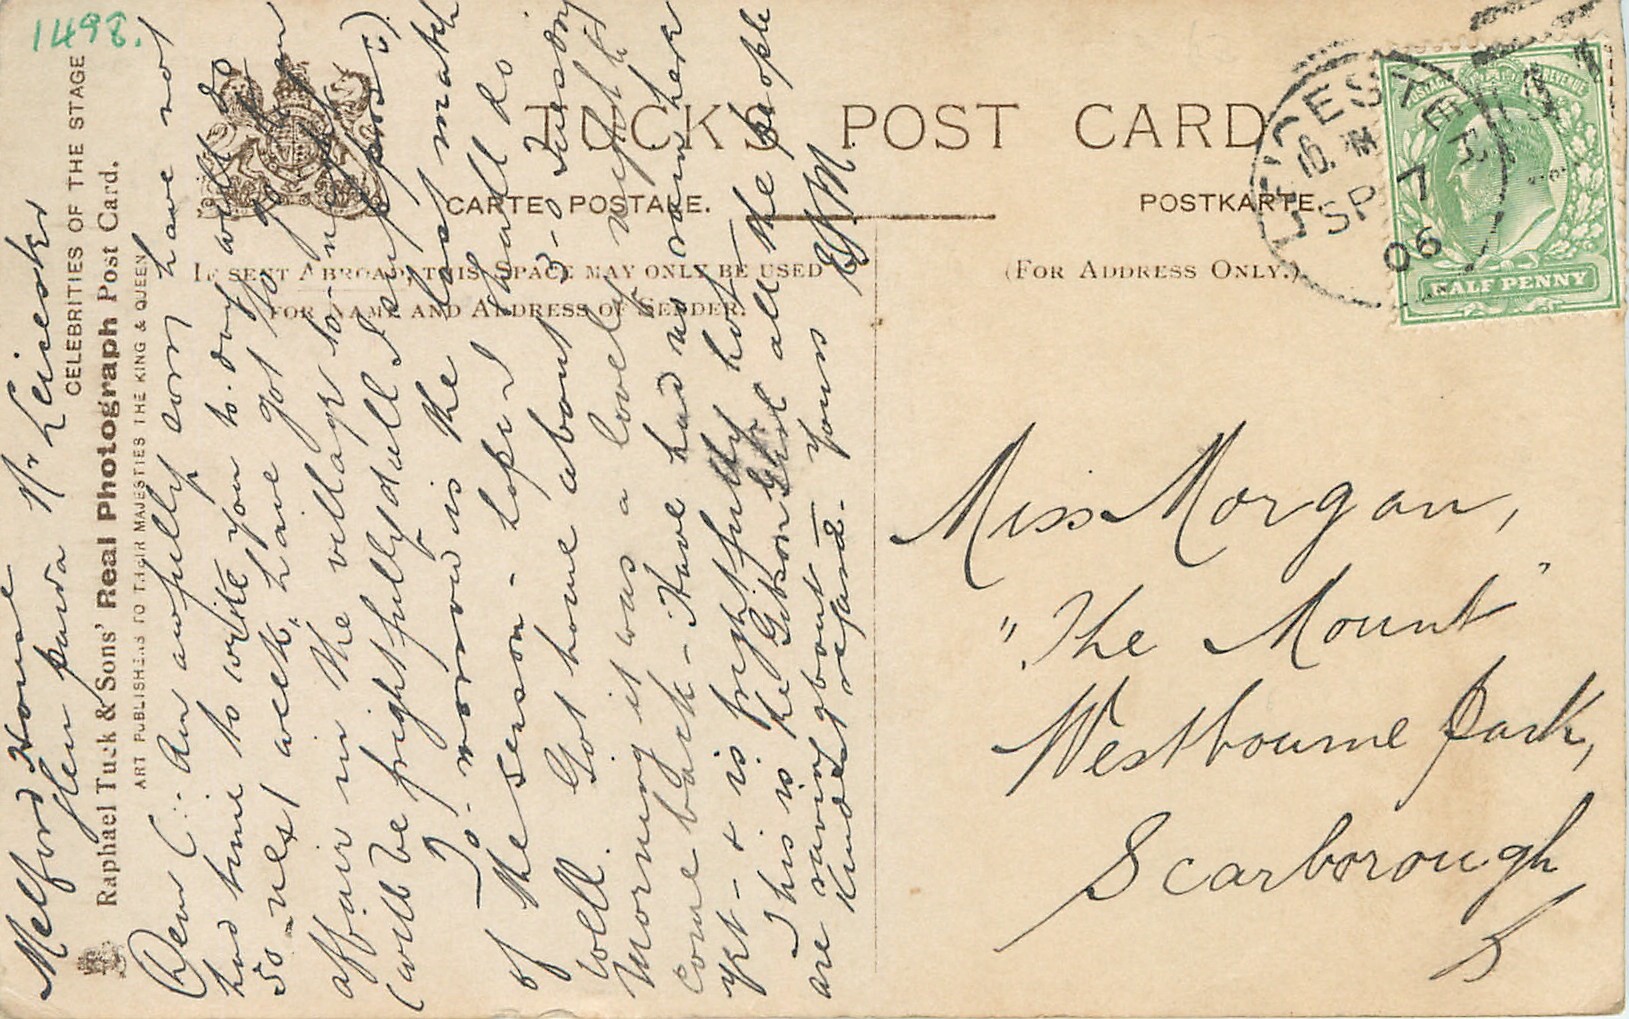 1498.
TUCK'S POST CARD
CARTE POSTALE.
POSTKARTE.
IF SENT ABROAD, THIS SPACE MAY ONLY BE USED
FOR NAME AND ADDRESS OF SENDER.
(FOR ADDRESS ONLY.)
CELEBRITIES OF THE STAGE
Raphael Tuck & Sons' Real Photograph Post Card.
ART PUBLISHERS TO THEIR MAJESTIES THE KING & QUEEN
Melford House
Glen parva Nr Leicester
Dear C:- Am awfully sorry have not
had time to write you to-day will do
so next week, have got to go to an
affair in the village to-night
(will be frightfully dull I suppose)
To-morrow is the last match
of the season - hope I shall do
well. Got home about 3-0 Tuesday
Morning it was a lovely night to
come back - Have had no rain here
yet - & is frightfully hot -
This is the Gibson Girl all the people
are raving about - yours
Kindest regards - EJM.
LEICESTER
10. SP 7
06
POSTAGE REVENUE
HALF PENNY
Miss Morgan,
"The Mount"
Westbourne Park,
Scarborough